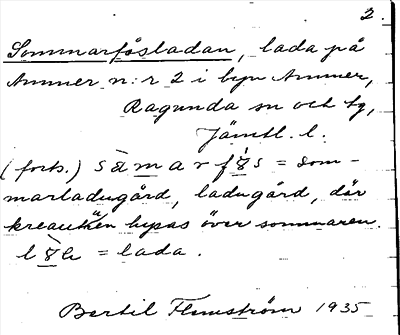 2.
Sommarfösladan, lada på
Ammer n:r 2 i byn Ammer,
Ragunda sn och tg,
Jämtl. l.
(forts.) sammarfös = som-
marladugård, ladugård, där
kreauten hysas över sommaren.
= lada.
Bertil Flemström 1935